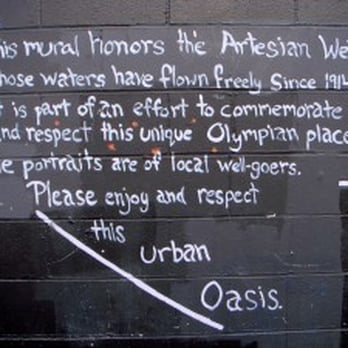 his mural honors the Artesian We
hose waters have flown freely Since 1914
t is part of an effort to commemorate
nd respect this unique Olympian place
e portraits are of local well-goers.
Please enjoy and respect
this
urban
Oasis.